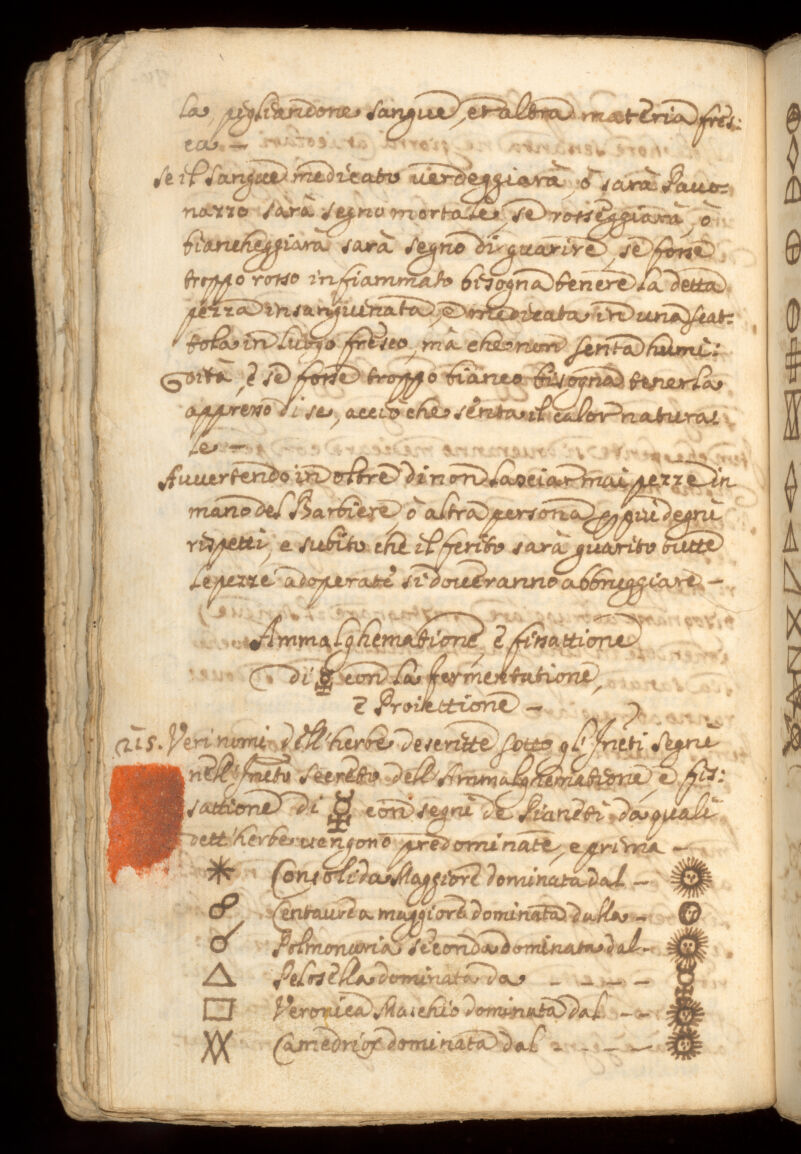 la, pigliandone sangue, et altra materia fres:
ca —
se il sangue medicato verdeggiarà, ò sarà Pauo:
nazzo sarà segno mortale, se rosseggiarà, ò
biancheggiarà sarà segno di guarire, se fosse
troppo rosso infiammato bisogna tenere la detta
pezza insanguinata, è medicata in una scat:
tola in luogo fresco, mà che non senta humi:
dità, è se fosse troppo bianco bisogna tenerla
appresso di se, acciò che senta il calor natura:
le —
Auuertendo in oltre di non lasciar mai pezze in
mano del Barbiere, ò altra persona più degni
rispetti, e subito che il ferito sarà guarito tutte
le pezze adoperate si doueranno abbruggiare —
Ammalghematione, è fissattione
di ☿ con la fermentatione,
è Proiettione —
215. Veri nomi dell'herbe descritte sotto gl'Inſti segni
nell' secreto dell'Ammalghematione, e fis:
sattione di ☿ con segni de Pianeti da quali
dett'herbe vengono predominate, e prima —
✳ Consolida Maggiore dominata dal — ☉
Centaurea maggiore dominata dalla —
☌ Polmonaria seconda dominata dal — ☉
△ Pelosella dominata da — — — —
□ Veronica Maschio dominata dal — — ☉
Camedrios dominata dal — — — — ☉